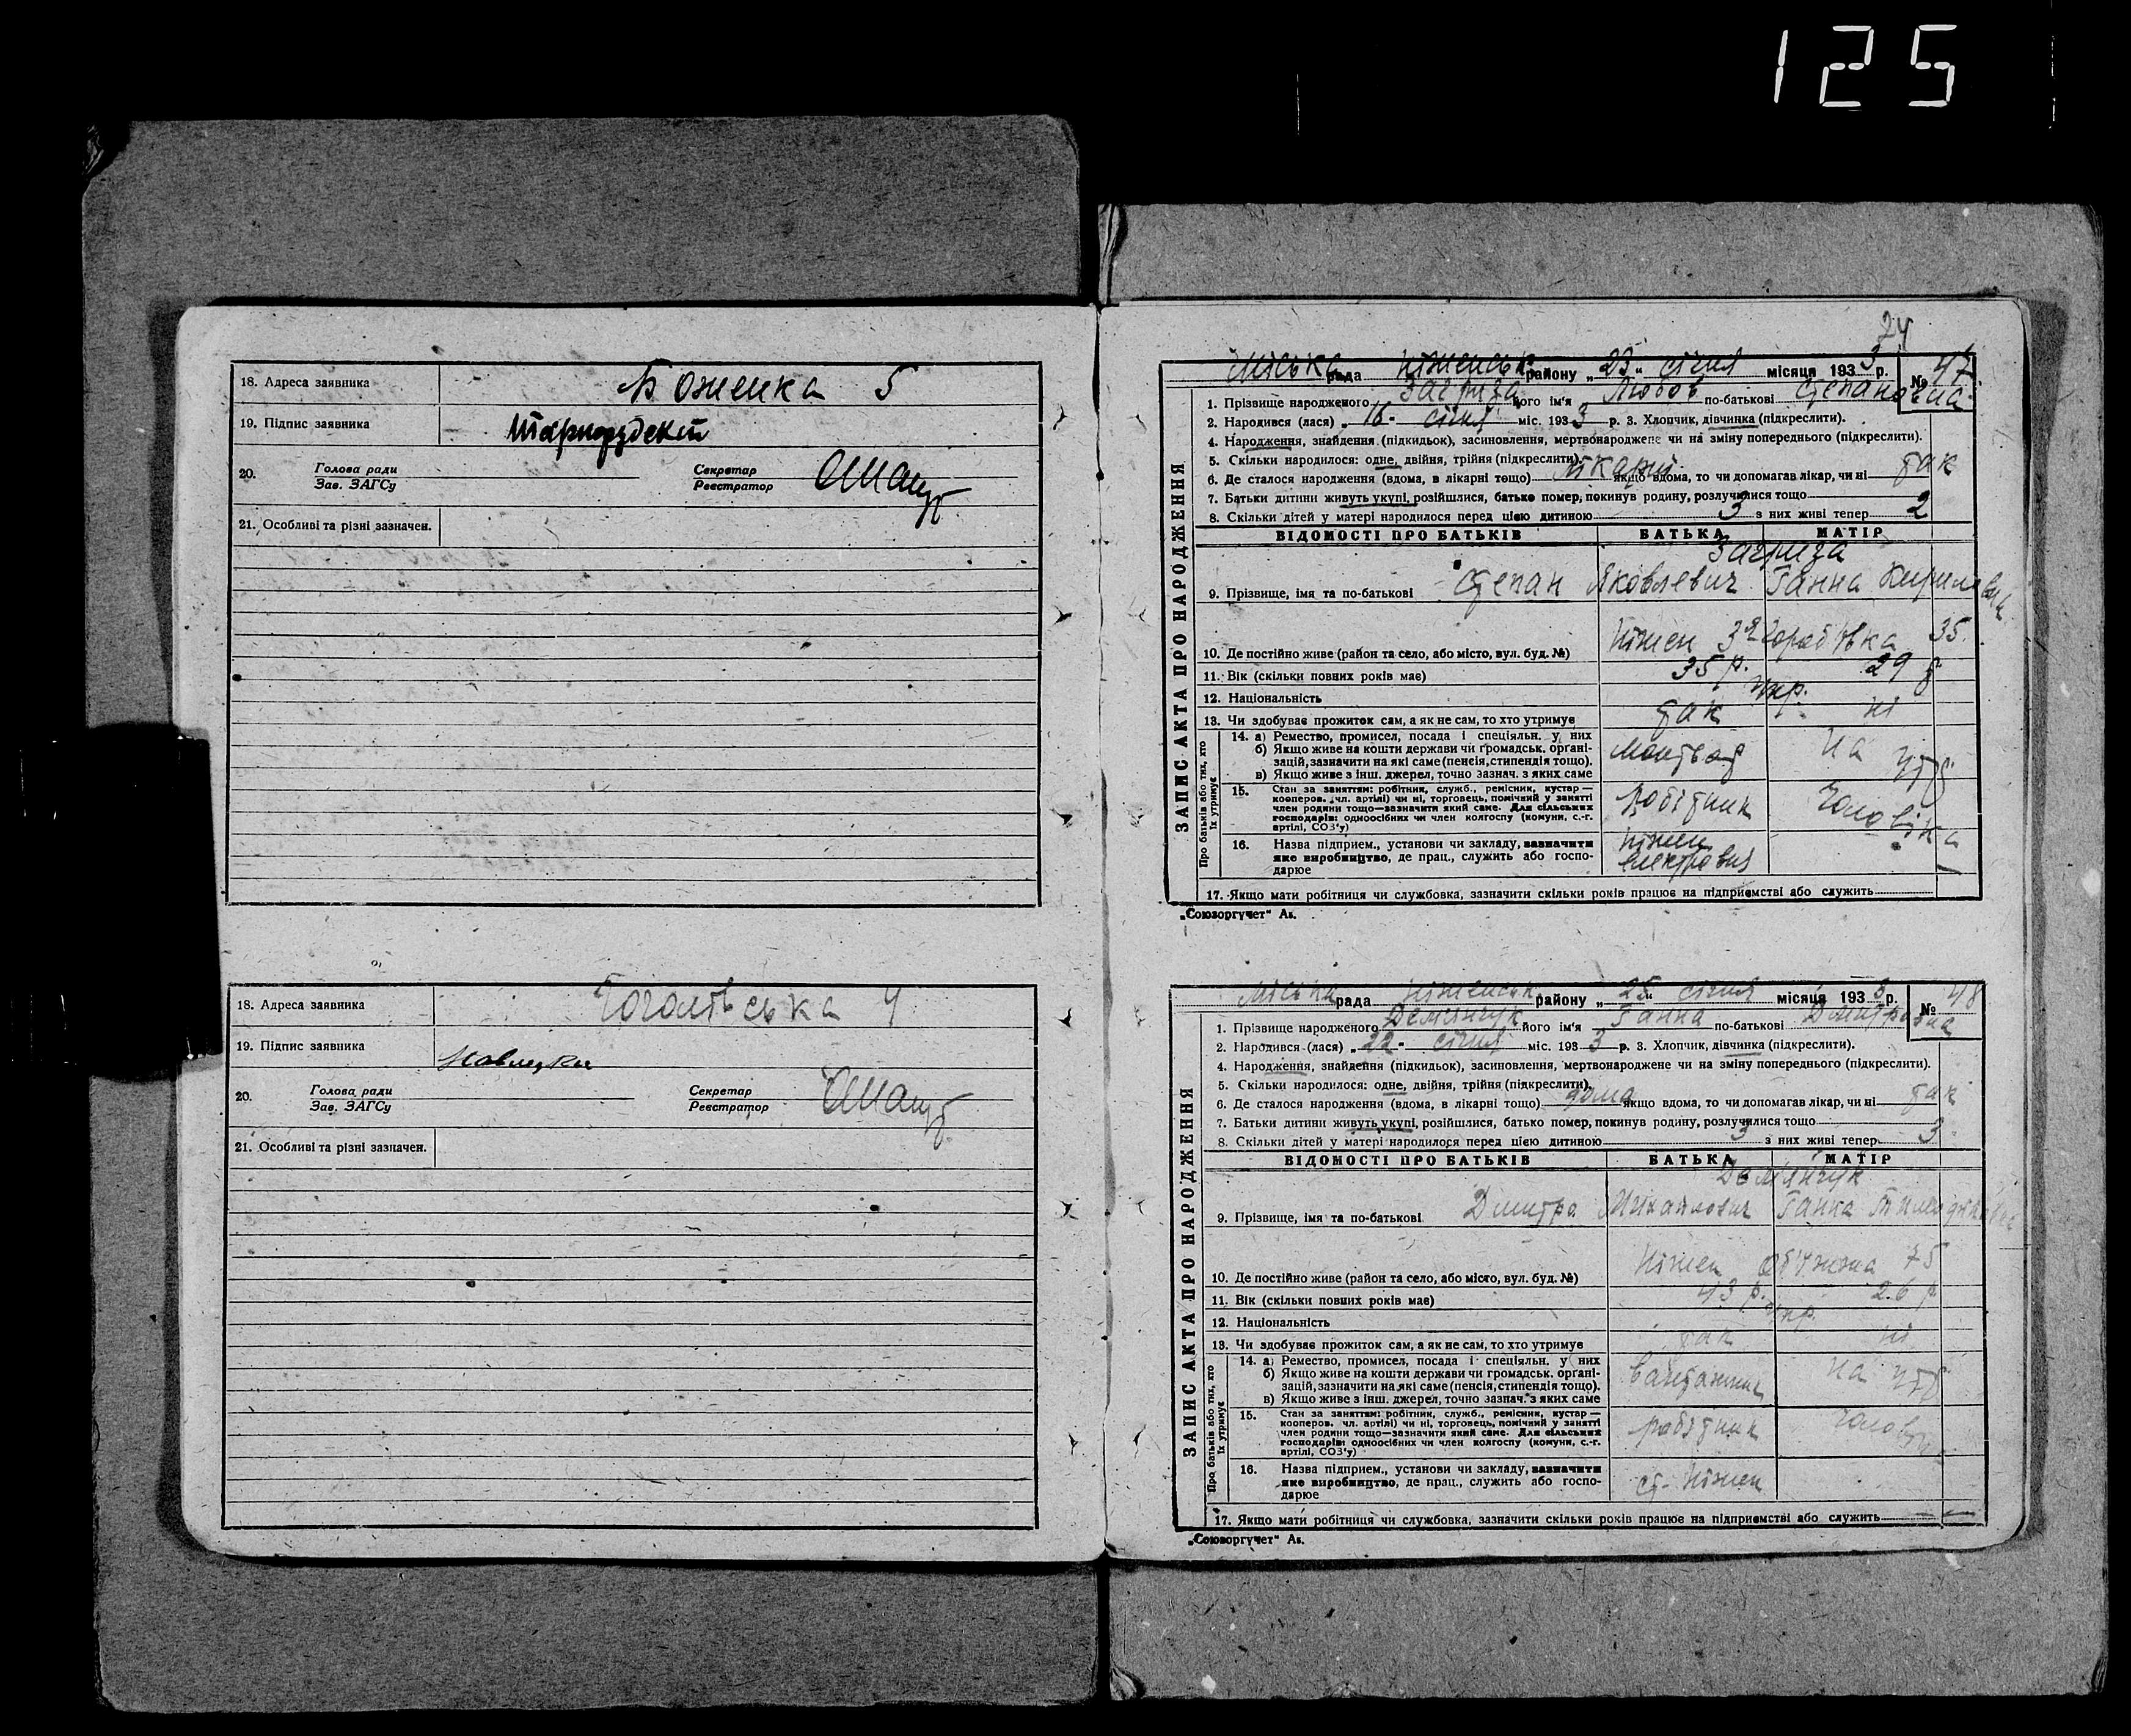 125
18. Адреса заявника Боженка 5
19. Підпис заявника
20. Голова ради Секретар
Зав. ЗАГСу Реєстратор
21. Особливі та різні зазначен.
18. Адреса заявника Гоголівська 4
19. Підпис заявника
20. Голова ради Секретар
Зав. ЗАГСу Реєстратор
21. Особливі та різні зазначен.
24
ЗАПИС АКТА ПРО НАРОДЖЕННЯ
Міська рада Ніженськ. району „23“ січня місяця 1933 р. № 47
1. Прізвище народженого Загриза його ім'я Любов по-батькові Степановна
2. Народився (лася) „16“ січня міс. 1933 р. 3. Хлопчик, дівчинка (підкреслити).
4. Народження, знайдення (підкидьок), засиновлення, мертвонароджене чи на зміну попереднього (підкреслити).
5. Скільки народилося: одне, двійня, трійня (підкреслити).
6. Де сталося народження (вдома, в лікарні тощо) лікарні якщо вдома, то чи допомагав лікар, чи ні так
7. Батьки дитини живуть укупі, розійшлися, батько помер, покинув родину, розлучилися тощо
8. Скільки дітей у матері народилося перед цією дитиною 3 з них живі тепер 2
ВІДОМОСТІ ПРО БАТЬКІВ БАТЬКА МАТІР
Загриза
9. Прізвище, імя та по-батькові Степан Яковлевич Ганна
10. Де постійно живе (район та село, або місто, вул. буд. №) Ніжен 35.
11. Вік (скільки повних років має) 35 р. 29 р
12. Національність Укр.
13. Чи здобуває прожиток сам, а як не сам, то хто утримує так ні
Про батьків або тих, хто їх утримує
14. а) Ремество, промисел, посада і спеціяльн. у них
б) Якщо живе на кошти держави чи громадськ. органі-
зацій, зазначити на які саме (пенсія, стипендія тощо).
в) Якщо живе з інш. джерел, точно зазнач. з яких саме
на утр
15. Стан за заняттям: робітник, служб., ремісник, кустар —
кооперов. чл. артілі) чи ні, торговець, помічний у занятті
член родини тощо—зазначити який саме. Для сільських
господарів: одноосібних чи член колгоспу (комуни, с.-г.
артілі, СОЗ'у)
робітник чоловіка
16. Назва підприєм., установи чи закладу, зазначити
яке виробництво, де прац., служить або госпо-
дарює
Ніжен
17. Якщо мати робітниця чи службовка, зазначити скільки років працює на підприємстві або служить
„Союзоргучет“ Ав.
ЗАПИС АКТА ПРО НАРОДЖЕННЯ
Міська рада Ніженськ. району „25“ січня місяця 1933 р. № 48
1. Прізвище народженого Демянчук його ім'я Ганна по-батькові Дмитровна
2. Народився (лася) „22“ січня міс. 1933 р. 3. Хлопчик, дівчинка (підкреслити).
4. Народження, знайдення (підкидьок), засиновлення, мертвонароджене чи на зміну попереднього (підкреслити).
5. Скільки народилося: одне, двійня, трійня (підкреслити).
6. Де сталося народження (вдома, в лікарні тощо) дома якщо вдома, то чи допомагав лікар, чи ні так
7. Батьки дитини живуть укупі, розійшлися, батько помер, покинув родину, розлучилися тощо
8. Скільки дітей у матері народилося перед цією дитиною 3 з них живі тепер 3
ВІДОМОСТІ ПРО БАТЬКІВ БАТЬКА МАТІР
Демянчук
9. Прізвище, імя та по-батькові Дмитро Михайлович Ганна
10. Де постійно живе (район та село, або місто, вул. буд. №) Ніжен Об'їжжа 75
11. Вік (скільки повних років має) 43 р. 26 р
12. Національність Укр.
13. Чи здобуває прожиток сам, а як не сам, то хто утримує так ні
Про батьків або тих, хто їх утримує
14. а) Ремество, промисел, посада і спеціяльн. у них
б) Якщо живе на кошти держави чи громадськ. органі-
зацій, зазначити на які саме (пенсія, стипендія тощо).
в) Якщо живе з інш. джерел, точно зазнач. з яких саме
на утр
15. Стан за заняттям: робітник, служб., ремісник, кустар —
кооперов. чл. артілі) чи ні, торговець, помічний у занятті
член родини тощо—зазначити який саме. Для сільських
господарів: одноосібних чи член колгоспу (комуни, с.-г.
артілі, СОЗ'у)
робітник
16. Назва підприєм., установи чи закладу, зазначити
яке виробництво, де прац., служить або госпо-
дарює
ст. Ніжен
17. Якщо мати робітниця чи службовка, зазначити скільки років працює на підприємстві або служить
„Союзоргучет“ Ав.